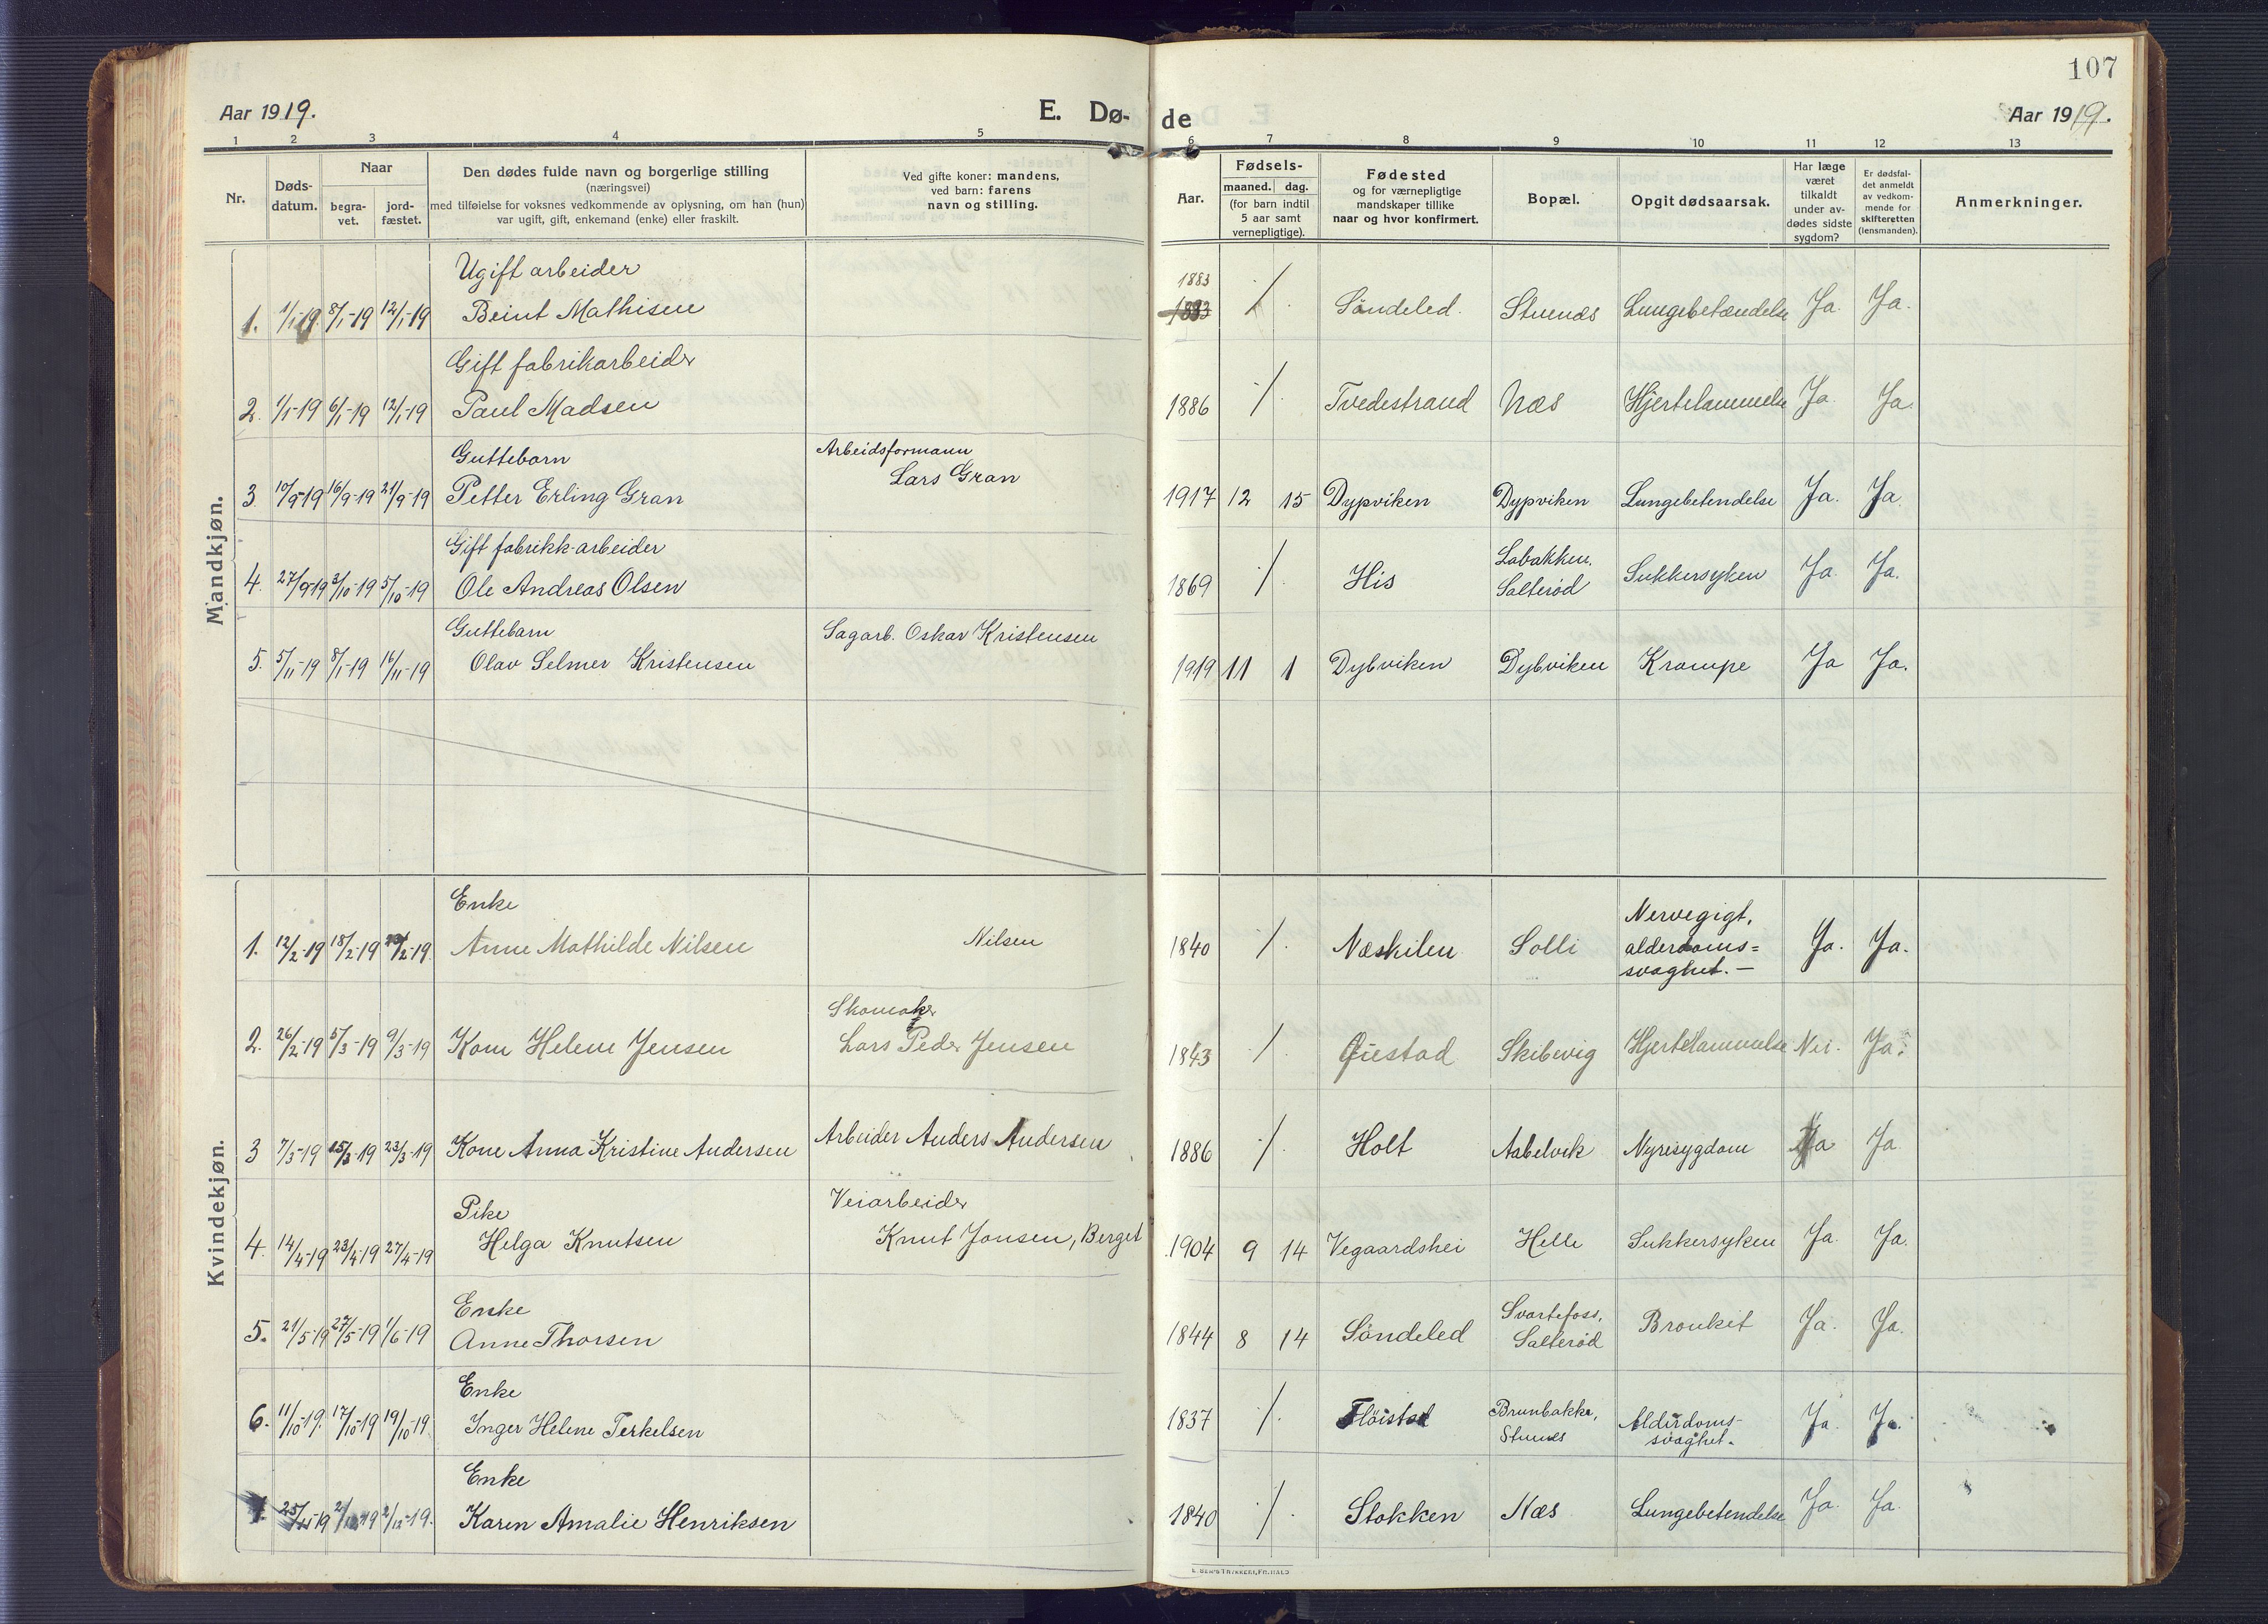 107
Aar 1919.
E. Dø-
de
Aar 1919.
1 2 3 4 5 6 7 8 9 10 11 12 13
Nr.
Døds-
datum.
Naar
begra-
vet.
jord-
fæstet.
Den dødes fulde navn og borgerlige stilling
(næringsvei)
med tilføielse for voksnes vedkommende av oplysning, om han (hun)
var ugift, gift, enkemand (enke) eller fraskilt.
Ved gifte koner: mandens,
ved barn: farens
navn og stilling.
Aar.
Fødsels-
maaned. dag.
(for barn indtil
5 aar samt
vernepligtige).
Fødested
og for værnepligtige
mandskaper tillike
naar og hvor konfirmert.
Bopæl.
Opgit dødsaarsak.
Har læge
været
tilkaldt
under av-
dødes sidste
sygdom?
Er dødsfal-
det anmeldt
av vedkom-
mende for
skifteretten
(lensmanden).
Anmerkninger.
Mandkjøn.
Ugift arbeider 1883
1. 1/1-19 8/1-19 12/1-19 Beint Mathisen 1883 Søndeled. Stuenæs Lungebetændelse Ja. Ja.
Gift fabrikarbeider
2. 1/1-19 6/1-19 12/1-19 Paul Madsen 1886 Tvedestrand Næs Hjertelammelse Ja. Ja.
Guttebarn Arbeidsformann
3 10/9-19 16/9-19 21/9-19 Petter Erling Gran Lars Gran 1917 12 15 Dypviken Dypviken Lungebetendelse Ja. Ja.
Gift fabrikk-arbeider Labakken,
4. 27/9-19 3/10-19 5/10-19 Ole Andreas Olsen 1869 His Salterød Sukkersyken Ja. Ja.
Guttebarn Sagarb. Oskar Kristensen
5. 5/11-19 8/1-19 16/11-19 Olav Selmer Kristensen 1919 11 1 Dybviken Dybviken Krampe Ja Ja.
Kvindekjøn.
Enke Nervegigt,
1. 12/2-19 18/2-19 /2-19 Anne Mathilde Nilsen Nilsen 1840 Næskilen Solli alderdoms=
svaghet. — Ja. Ja.
Skomaker
2. 26/2-19 5/3-19 9/3-19 Kone Helene Jensen Lars Peder Jensen 1843 Øiestad Skibevig Hjertelammelse Nei. Ja.
3 7/3-19 15/3-19 23/3-19 Kone Anna Kristine Andersen Arbeider Anders Andersen 1886 Holt Aabelvik Nyresygdom Ja Ja
Pike Veiarbeider
4. 14/4-19 23/4-19 27/4-19 Helga Knutsen Knut Jonsen, Berget 1904 9 14 Vegaardshei Helle Sukkersyken Ja. Ja.
Enke Svartefoss,
5. 21/5-19 27/5-19 1/6-19 Anne Thorsen 1844 8 14 Søndeled Salterød Bronkit Ja. Ja.
Enke Brunbakke,
6. 11/10-19. 17/10-19 19/10-19 Inger Helene Terkelsen 1837 Fløistad Stuenes Alderdoms-
svaghet. Ja. Ja.
Enke
25/-19 2/12-19 2/12-19. Karen Amalie Henriksen 1840 Stokken Næs Lungebetendelse Ja. Ja.